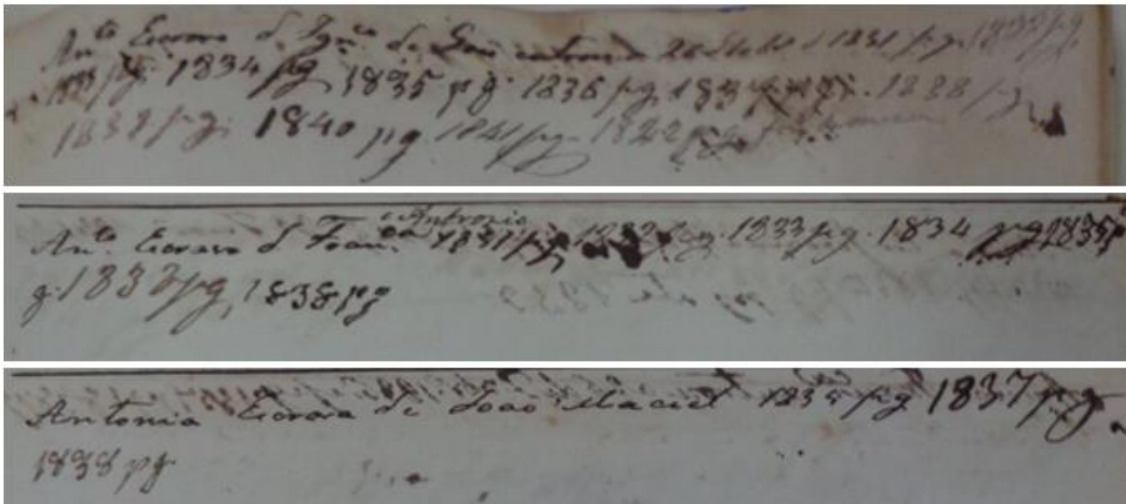 An.to Escravo d Ign.co de San entrou a 26 de 1831 pg. 1832 pg.
1833 pg. 1834 pg 1835 pg. 1836 pg. 1837 pg. 1838 pg
1839 pg. 1840 pg 1841 pg. 1842 pg
Antonio
An.to Escravo d Fran.co 1831 pg 1832 pg. 1833 pg. 1834 pg 1835 p
g. 1837 pg, 1838 pg
Antonia Escrava de Joao Maciel 1835 pg 1837 pg
1838 pg